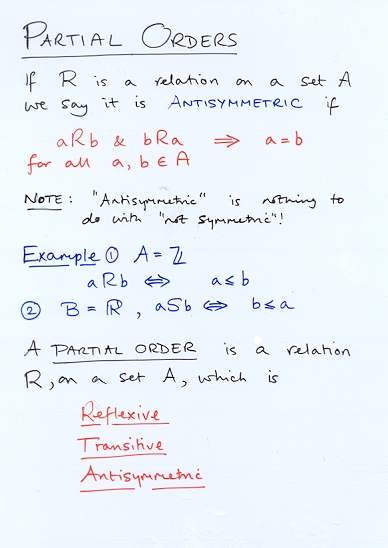 PARTIAL ORDERS
If R is a relation on a set A
we say it is ANTISYMMETRIC if
aRb & bRa ⇒ a=b
for all a, b ∈ A
NOTE: "Antisymmetric" is nothing to
do with "not symmetric"!
Example ① A = ℤ
aRb ⇔ a≤b
② B = ℝ, aSb ⇔ b≤a
A PARTIAL ORDER is a relation
R, on a set A, which is
Reflexive
Transitive
Antisymmetric